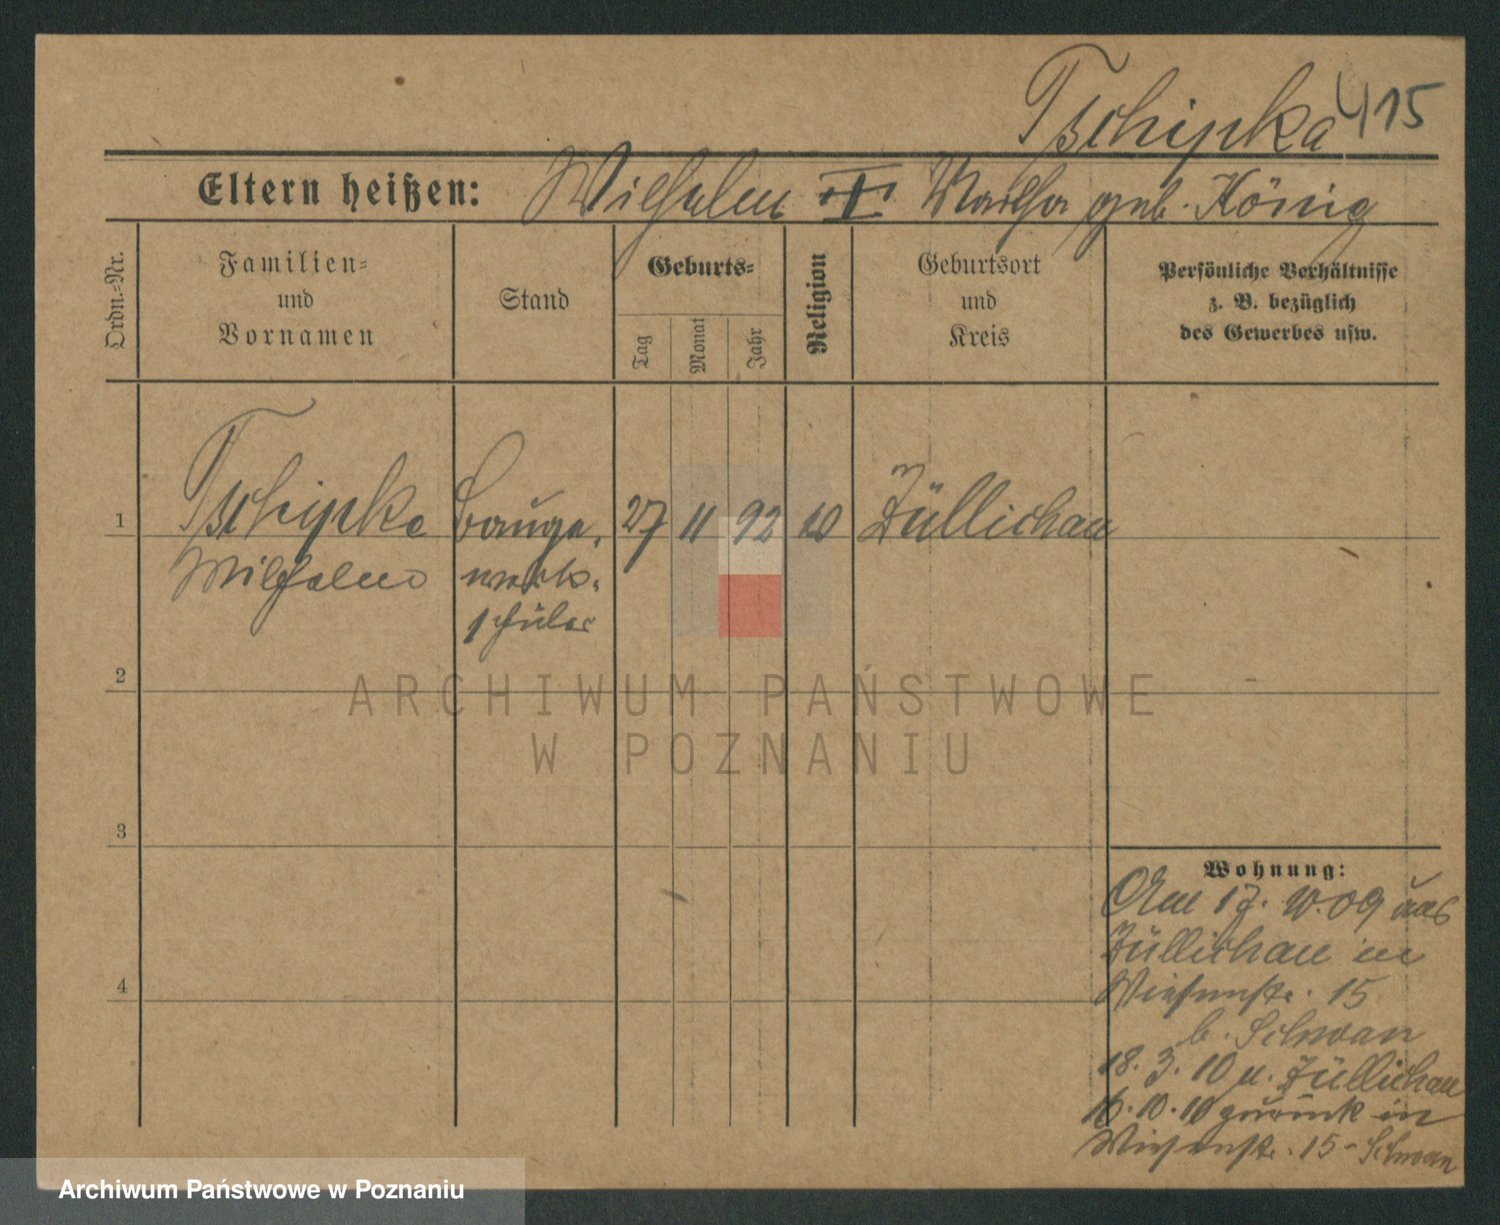 Tschipka 415
Eltern heißen: Wilhelm Martha geb. König
Ordn.=Nr.
Familien=
und
Vornamen
Stand
Geburts=
Tag
Monat
Jahr
Religion
Geburtsort
und
Kreis
Persönliche Verhältnisse
z. B. bezüglich
des Gewerbes usw.
1 Tschipke Bauge. 27 11 92 Züllichau
Wilhelm werk.
schüler
2
ARCHIWUM PAŃSTWOWE
W POZNANIU
3
Wohnung:
Am 17. 10. 09 aus
Züllichau in
Wiesenstr. 15
b. Schwan
4
18. 3. 10 n. Züllichau
16. 10. 10 zurück in
Wiesenstr. 15 - Schwan
Archiwum Państwowe w Poznaniu